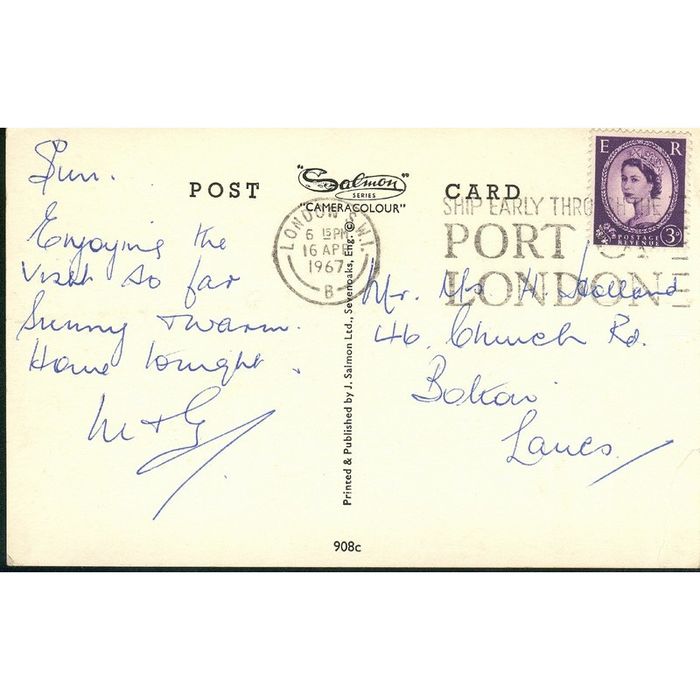 Sun.
Enjoying the
visit so far
Sunny & warm.
Home tonight.
M & G
POST CARD
"Salmon"
SERIES
"CAMERACOLOUR" ©
Printed & Published by J. Salmon Ltd., Sevenoaks, Eng.
908c
LONDON S.W.1.
6 15 PM
16 APR
1967
B
SHIP EARLY THRO
PORT OF
LONDON
E R
3D
POSTAGE
REVENUE
Mr. Mrs H. Holland
46. Church Rd.
Bolton
Lancs.